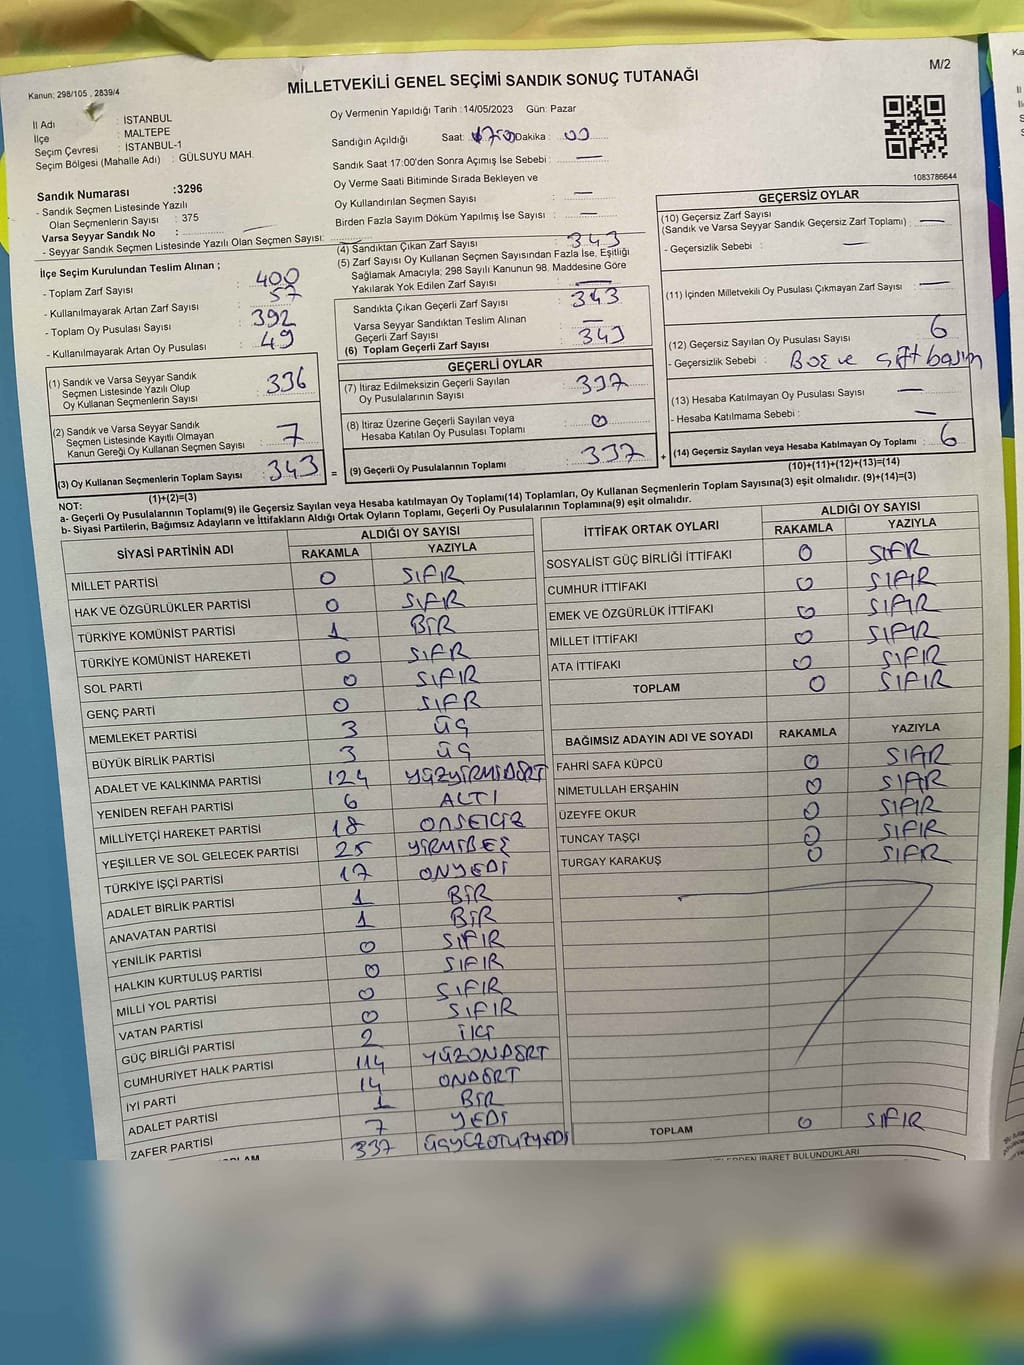 Kanun: 298/105 , 2839/4
MİLLETVEKİLİ GENEL SEÇİMİ SANDIK SONUÇ TUTANAĞI
M/2
İl Adı : İSTANBUL
İlçe : MALTEPE
Seçim Çevresi : İSTANBUL-1
Seçim Bölgesi (Mahalle Adı) : GÜLSUYU MAH.
Oy Vermenin Yapıldığı Tarih :14/05/2023 Gün: Pazar
Sandığın Açıldığı Saat: 1700 Dakika : 00
Sandık Saat 17:00'den Sonra Açımış İse Sebebi : —
Oy Verme Saati Bitiminde Sırada Bekleyen ve
Oy Kullandırılan Seçmen Sayısı : —
Birden Fazla Sayım Döküm Yapılmış İse Sayısı : —
1083786644
Sandık Numarası :3296
- Sandık Seçmen Listesinde Yazılı
Olan Seçmenlerin Sayısı : 375
Varsa Seyyar Sandık No :
- Seyyar Sandık Seçmen Listesinde Yazılı Olan Seçmen Sayısı:
İlçe Seçim Kurulundan Teslim Alınan ;
- Toplam Zarf Sayısı : 400
- Kullanılmayarak Artan Zarf Sayısı : 57
- Toplam Oy Pusulası Sayısı : 392
- Kullanılmayarak Artan Oy Pusulası : 49
(1) Sandık ve Varsa Seyyar Sandık
Seçmen Listesinde Yazılı Olup
Oy Kullanan Seçmenlerin Sayısı : 336
(2) Sandık ve Varsa Seyyar Sandık
Seçmen Listesinde Kayıtlı Olmayan
Kanun Gereği Oy Kullanan Seçmen Sayısı : 7
(3) Oy Kullanan Seçmenlerin Toplam Sayısı : 343
(1)+(2)=(3)
(4) Sandıktan Çıkan Zarf Sayısı : 343
(5) Zarf Sayısı Oy Kullanan Seçmen Sayısından Fazla İse, Eşitliği
Sağlamak Amacıyla; 298 Sayılı Kanunun 98. Maddesine Göre
Yakılarak Yok Edilen Zarf Sayısı : —
Sandıkta Çıkan Geçerli Zarf Sayısı : 343
Varsa Seyyar Sandıktan Teslim Alınan
Geçerli Zarf Sayısı : —
(6) Toplam Geçerli Zarf Sayısı : 343
GEÇERLİ OYLAR
(7) İtiraz Edilmeksizin Geçerli Sayılan
Oy Pusulalarının Sayısı : 337
(8) İtiraz Üzerine Geçerli Sayılan veya
Hesaba Katılan Oy Pusulası Toplamı : 0
= (9) Geçerli Oy Pusulalarının Toplamı : 337 +
GEÇERSİZ OYLAR
(10) Geçersiz Zarf Sayısı
(Sandık ve Varsa Seyyar Sandık Geçersiz Zarf Toplamı) : —
- Geçersizlik Sebebi : —
(11) İçinden Milletvekili Oy Pusulası Çıkmayan Zarf Sayısı : —
(12) Geçersiz Sayılan Oy Pusulası Sayısı : 6
- Geçersizlik Sebebi : Boş ve çift basım
(13) Hesaba Katılmayan Oy Pusulası Sayısı : —
- Hesaba Katılmama Sebebi : —
(14) Geçersiz Sayılan veya Hesaba Katılmayan Oy Toplamı : 6
(10)+(11)+(12)+(13)=(14)
NOT:
a- Geçerli Oy Pusulalarının Toplamı(9) ile Geçersiz Sayılan veya Hesaba katılmayan Oy Toplamı(14) Toplamları, Oy Kullanan Seçmenlerin Toplam Sayısına(3) eşit olmalıdır. (9)+(14)=(3)
b- Siyasi Partilerin, Bağımsız Adayların ve İttifakların Aldığı Ortak Oyların Toplamı, Geçerli Oy Pusulalarının Toplamına(9) eşit olmalıdır.
SİYASİ PARTİNİN ADI ALDIĞI OY SAYISI
RAKAMLA YAZIYLA
MİLLET PARTİSİ 0 SIFIR
HAK VE ÖZGÜRLÜKLER PARTİSİ 0 SIFIR
TÜRKİYE KOMÜNİST PARTİSİ 1 BİR
TÜRKİYE KOMÜNİST HAREKETİ 0 SIFIR
SOL PARTİ 0 SIFIR
GENÇ PARTİ 0 SIFIR
MEMLEKET PARTİSİ 3 ÜÇ
BÜYÜK BİRLİK PARTİSİ 3 ÜÇ
ADALET VE KALKINMA PARTİSİ 124 YÜZYİRMİDÖRT
YENİDEN REFAH PARTİSİ 6 ALTI
MİLLİYETÇİ HAREKET PARTİSİ 18 ONSEKİZ
YEŞİLLER VE SOL GELECEK PARTİSİ 25 YİRMİBEŞ
TÜRKİYE İŞÇİ PARTİSİ 17 ONYEDİ
ADALET BİRLİK PARTİSİ 1 BİR
ANAVATAN PARTİSİ 1 BİR
YENİLİK PARTİSİ 0 SIFIR
HALKIN KURTULUŞ PARTİSİ 0 SIFIR
MİLLİ YOL PARTİSİ 0 SIFIR
VATAN PARTİSİ 0 SIFIR
GÜÇ BİRLİĞİ PARTİSİ 2 İKİ
CUMHURİYET HALK PARTİSİ 114 YÜZONDÖRT
İYİ PARTİ 14 ONDÖRT
ADALET PARTİSİ 1 BİR
ZAFER PARTİSİ 7 YEDİ
337 ÜÇYÜZOTUZYEDİ
İTTİFAK ORTAK OYLARI ALDIĞI OY SAYISI
RAKAMLA YAZIYLA
SOSYALİST GÜÇ BİRLİĞİ İTTİFAKI 0 SIFIR
CUMHUR İTTİFAKI 0 SIFIR
EMEK VE ÖZGÜRLÜK İTTİFAKI 0 SIFIR
MİLLET İTTİFAKI 0 SIFIR
ATA İTTİFAKI 0 SIFIR
TOPLAM 0 SIFIR
BAĞIMSIZ ADAYIN ADI VE SOYADI RAKAMLA YAZIYLA
FAHRİ SAFA KÜPCÜ 0 SIFIR
NİMETULLAH ERŞAHİN 0 SIFIR
ÜZEYFE OKUR 0 SIFIR
TUNCAY TAŞÇI 0 SIFIR
TURGAY KARAKUŞ 0 SIFIR
TOPLAM 0 SIFIR
İBARET BULUNDUKLARI